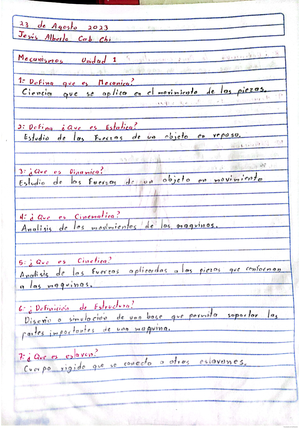 23 de Agosto 2023
Jesús Alberto Cab Chi
Mecanismos Unidad 1
1: Defina que es Mecanica?
Ciencia que se aplica en el movimiento de las piezas.
2: Defina ¿Que es Estatica?
Estudio de las Fuerzas de un objeto en reposo.
3: ¿Que es Dinamica?
Estudio de las Fuerzas de un objeto en movimiento
4: ¿Que es Cinematica?
Analisis de los movimientos de las maquinas.
5: ¿Que es Cinetica?
Analisis de las Fuerzas aplicadas a las piezas que conforman
a las maquinas.
6: ¿Definición de Estructura?
Diseño o simulación de una base que permita soportar las
partes importantes de una maquina.
7: ¿Que es eslavon?
Cuerpo rigido que se conecta a otros eslavones.